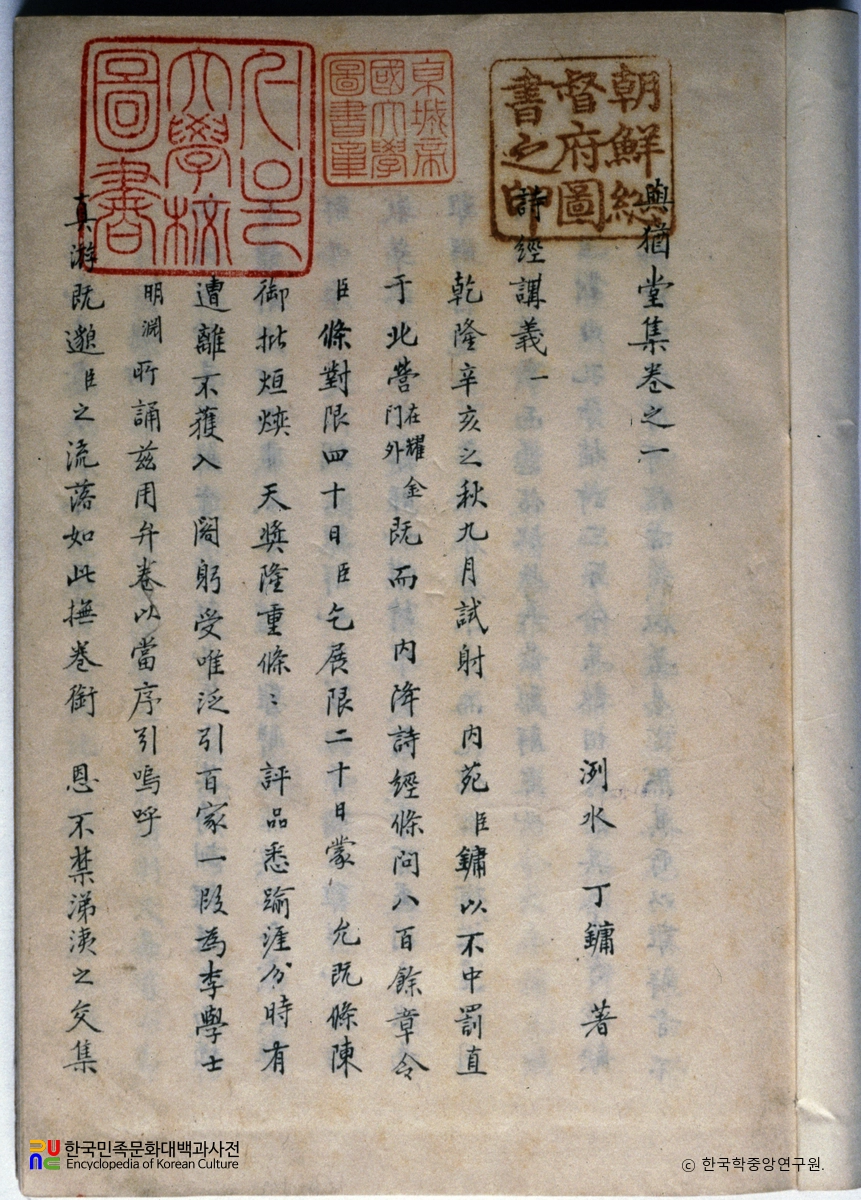 與猶堂集卷之一
洌水 丁鏞 著
詩經講義一
乾隆辛亥之秋九月試射 內苑臣鏞以不中罰直
于北營在耀金門外既而 內降詩經條問八百餘章令
臣條對限四十日臣乞展限二十日蒙 允既條陳
御批烜煥 天奬隆重條〻評品悉踰涯分時有
遭離不獲入 閤躬受唯泛引百家一段為李學士
明淵所誦茲用弁卷以當序引嗚呼
真游既邈臣之流落如此撫卷銜 恩不禁涕洟之交集
朝鮮総督府圖書之印
京城帝國大學圖書章
서울大學校圖書
한국민족문화대백과사전
Encyclopedia of Korean Culture
ⓒ 한국학중앙연구원.